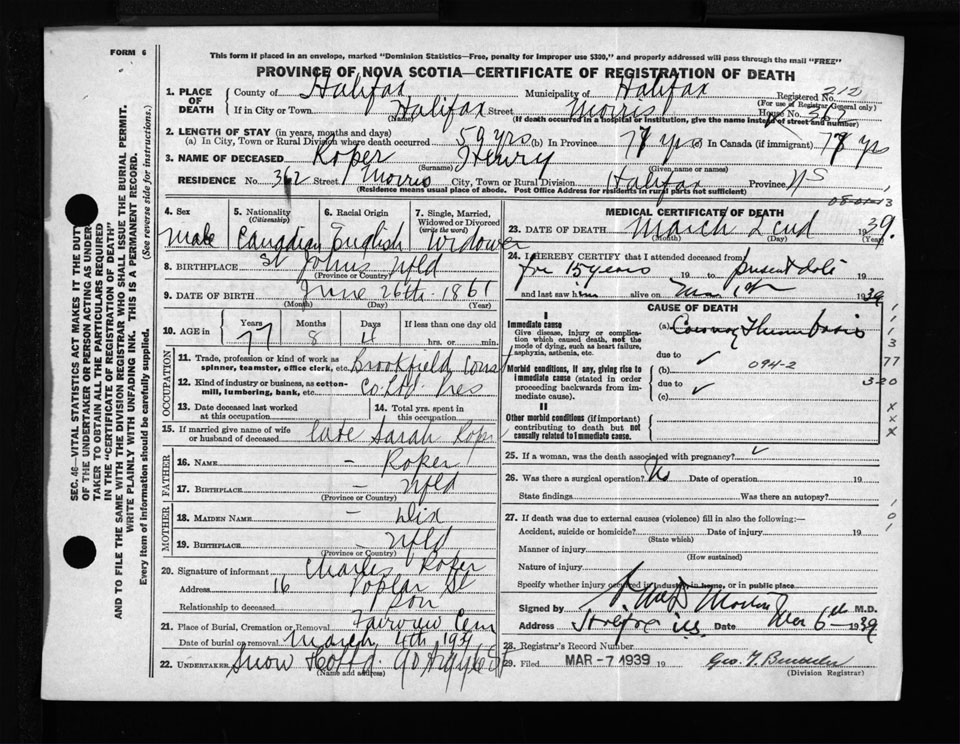 FORM 6
This form if placed in an envelope, marked "Dominion Statistics—Free, penalty for improper use $300," and properly addressed will pass through the mail "FREE"
PROVINCE OF NOVA SCOTIA—CERTIFICATE OF REGISTRATION OF DEATH
1. PLACE OF DEATH
County of Halifax Municipality of Halifax Registered No. 212
(For use of Registrar General only)
If in City or Town Halifax Street Morris House No. 362
(Name) (If death occurred in a hospital or institution, give the name instead of street and number)
2. LENGTH OF STAY (in years, months and days)
(a) In City, Town or Rural Division where death occurred 59 yrs (b) In Province 77 yrs (c) In Canada (if immigrant) 77 yrs
3. NAME OF DECEASED Roper Henry
(Surname) (Given name or names)
RESIDENCE No. 362 Street Morris City, Town or Rural Division Halifax Province NS
(Residence means usual place of abode. Post Office Address for residents in rural parts not sufficient)
4. Sex Male
5. Nationality (Citizenship) Canadian
6. Racial Origin English
7. Single, Married, Widowed or Divorced (write the word) Widower
8. BIRTHPLACE St Johns Nfld
(Province or Country)
9. DATE OF BIRTH June 26th 1861
(Month) (Day) (Year)
10. AGE in Years 77 Months 8 Days 4 If less than one day
hrs. or min.
OCCUPATION
11. Trade, profession or kind of work as spinner, teamster, office clerk, etc. Brookfield Const
12. Kind of industry or business, as cotton-mill, lumbering, bank, etc. Co. Ltd. Pres
13. Date deceased last worked at this occupation
14. Total yrs. spent in this occupation
15. If married give name of wife or husband of deceased late Sarah Roper
FATHER
16. NAME — Roper
17. BIRTHPLACE — Nfld
(Province or Country)
MOTHER
18. MAIDEN NAME — Dix
19. BIRTHPLACE — Nfld
(Province or Country)
20. Signature of informant Charles Roper
Address 16 Poplar St
Relationship to deceased Son
21. Place of Burial, Cremation or Removal Fairview Cem
Date of burial or removal March 4th 1939
22. UNDERTAKER Snow & Co Ltd. 90 Argyle St
(Name and address)
MEDICAL CERTIFICATE OF DEATH
23. DATE OF DEATH March 2 cnd 1939
(Month) (Day) (Year)
24. I HEREBY CERTIFY that I attended deceased from
for 15 years 19 to present date
and last saw him alive on Mar 1st 1939
CAUSE OF DEATH
I
Immediate cause
Give disease, injury or complication which caused death, not the mode of dying, such as heart failure, asphyxia, asthenia, etc.
(a) Coronary Thrombosis
due to
Morbid conditions, if any, giving rise to immediate cause (stated in order proceeding backwards from immediate cause).
(b) 094-2
due to
(c)
II
Other morbid conditions (if important) contributing to death but not causally related to immediate cause.
25. If a woman, was the death associated with pregnancy?
26. Was there a surgical operation? No Date of operation 19
State findings Was there an autopsy?
27. If death was due to external causes (violence) fill in also the following:—
Accident, suicide or homicide? Date of injury 19
(State which)
Manner of injury
(How sustained)
Nature of injury
Specify whether injury occurred in industry, in home, or in public place
Signed by M.D.
Address Halifax NS Date Mar 6th 1939
28. Registrar's Record Number
29. Filed MAR -7 1939 19
(Division Registrar)
77
320
xxx
101
SEC. 46—VITAL STATISTICS ACT MAKES IT THE DUTY
OF THE UNDERTAKER OR PERSON ACTING AS UNDER-
TAKER TO OBTAIN ALL THE PARTICULARS REQUIRED
IN THE "CERTIFICATE OF REGISTRATION OF DEATH"
AND TO FILE THE SAME WITH THE DIVISION REGISTRAR WHO SHALL ISSUE THE BURIAL PERMIT.
WRITE PLAINLY WITH UNFADING INK. THIS IS A PERMANENT RECORD.
Every item of information should be carefully supplied. (See reverse side for instructions.)